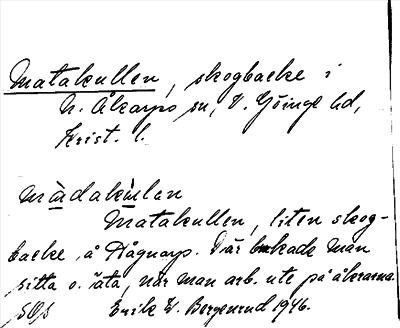 Matakullen, skogbacke i
N. Åkarps sn, V. Göinge hd,
Krist. l.
màdakùlan
Matakullen, liten skog-
backe å Hågnarp. Där brukade man
sitta o. äta, när man arb. ute på åkrarna.
Erik W. Bergenrud 1946.